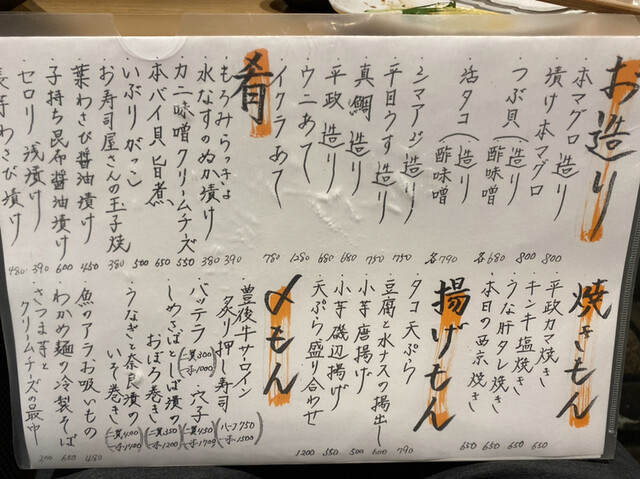 お造り
・本マグロ 造り 800
・漬け本マグロ 800
・つぶ貝(造り 酢味噌 各680
・活タコ(造り 酢味噌 各790
・シマアジ 造り 790
・平目うす造り 750
・真鯛 造り 680
・平政 造り 680
・ウニあて 1280
・イクラあて 780
肴
もろみらっきょ 390
水なすのぬか漬け 380
カニ味噌クリームチーズ 550
本バイ貝 旨煮 650
いぶりがっこ 500
お寿司屋さんの玉子焼 380
葉わさび醤油漬け 450
子持ち昆布醤油漬け 600
セロリ 浅漬け 390
長芋わさび漬け 480
焼きもん
・平政カマ焼き 650
・チンキ塩焼き 650
・うな肝タレ焼き 650
・本日の西京焼き 650
揚げもん
・タコ天ぷら 790
・豆腐と水ナスの揚出し 600
・小芋唐揚げ 500
・小芋磯辺揚げ 550
・天ぷら盛り合わせ 1200
〆もん
・豊後牛サロイン
炙り押し寿司 (ハーフ750 一本1500)
・バッテラ(一貫300 一本1000)・穴子(一貫450 一本1700)
・しめさばとしば漬の
おぼろ巻き(一貫350 一本1200)
・うなぎと奈良漬の
いそ巻き(一貫400 一本1400)
・魚のアラお吸いもの 480
・わかめ麺の冷製そば 650
・さつま芋と
クリームチーズの最中 200